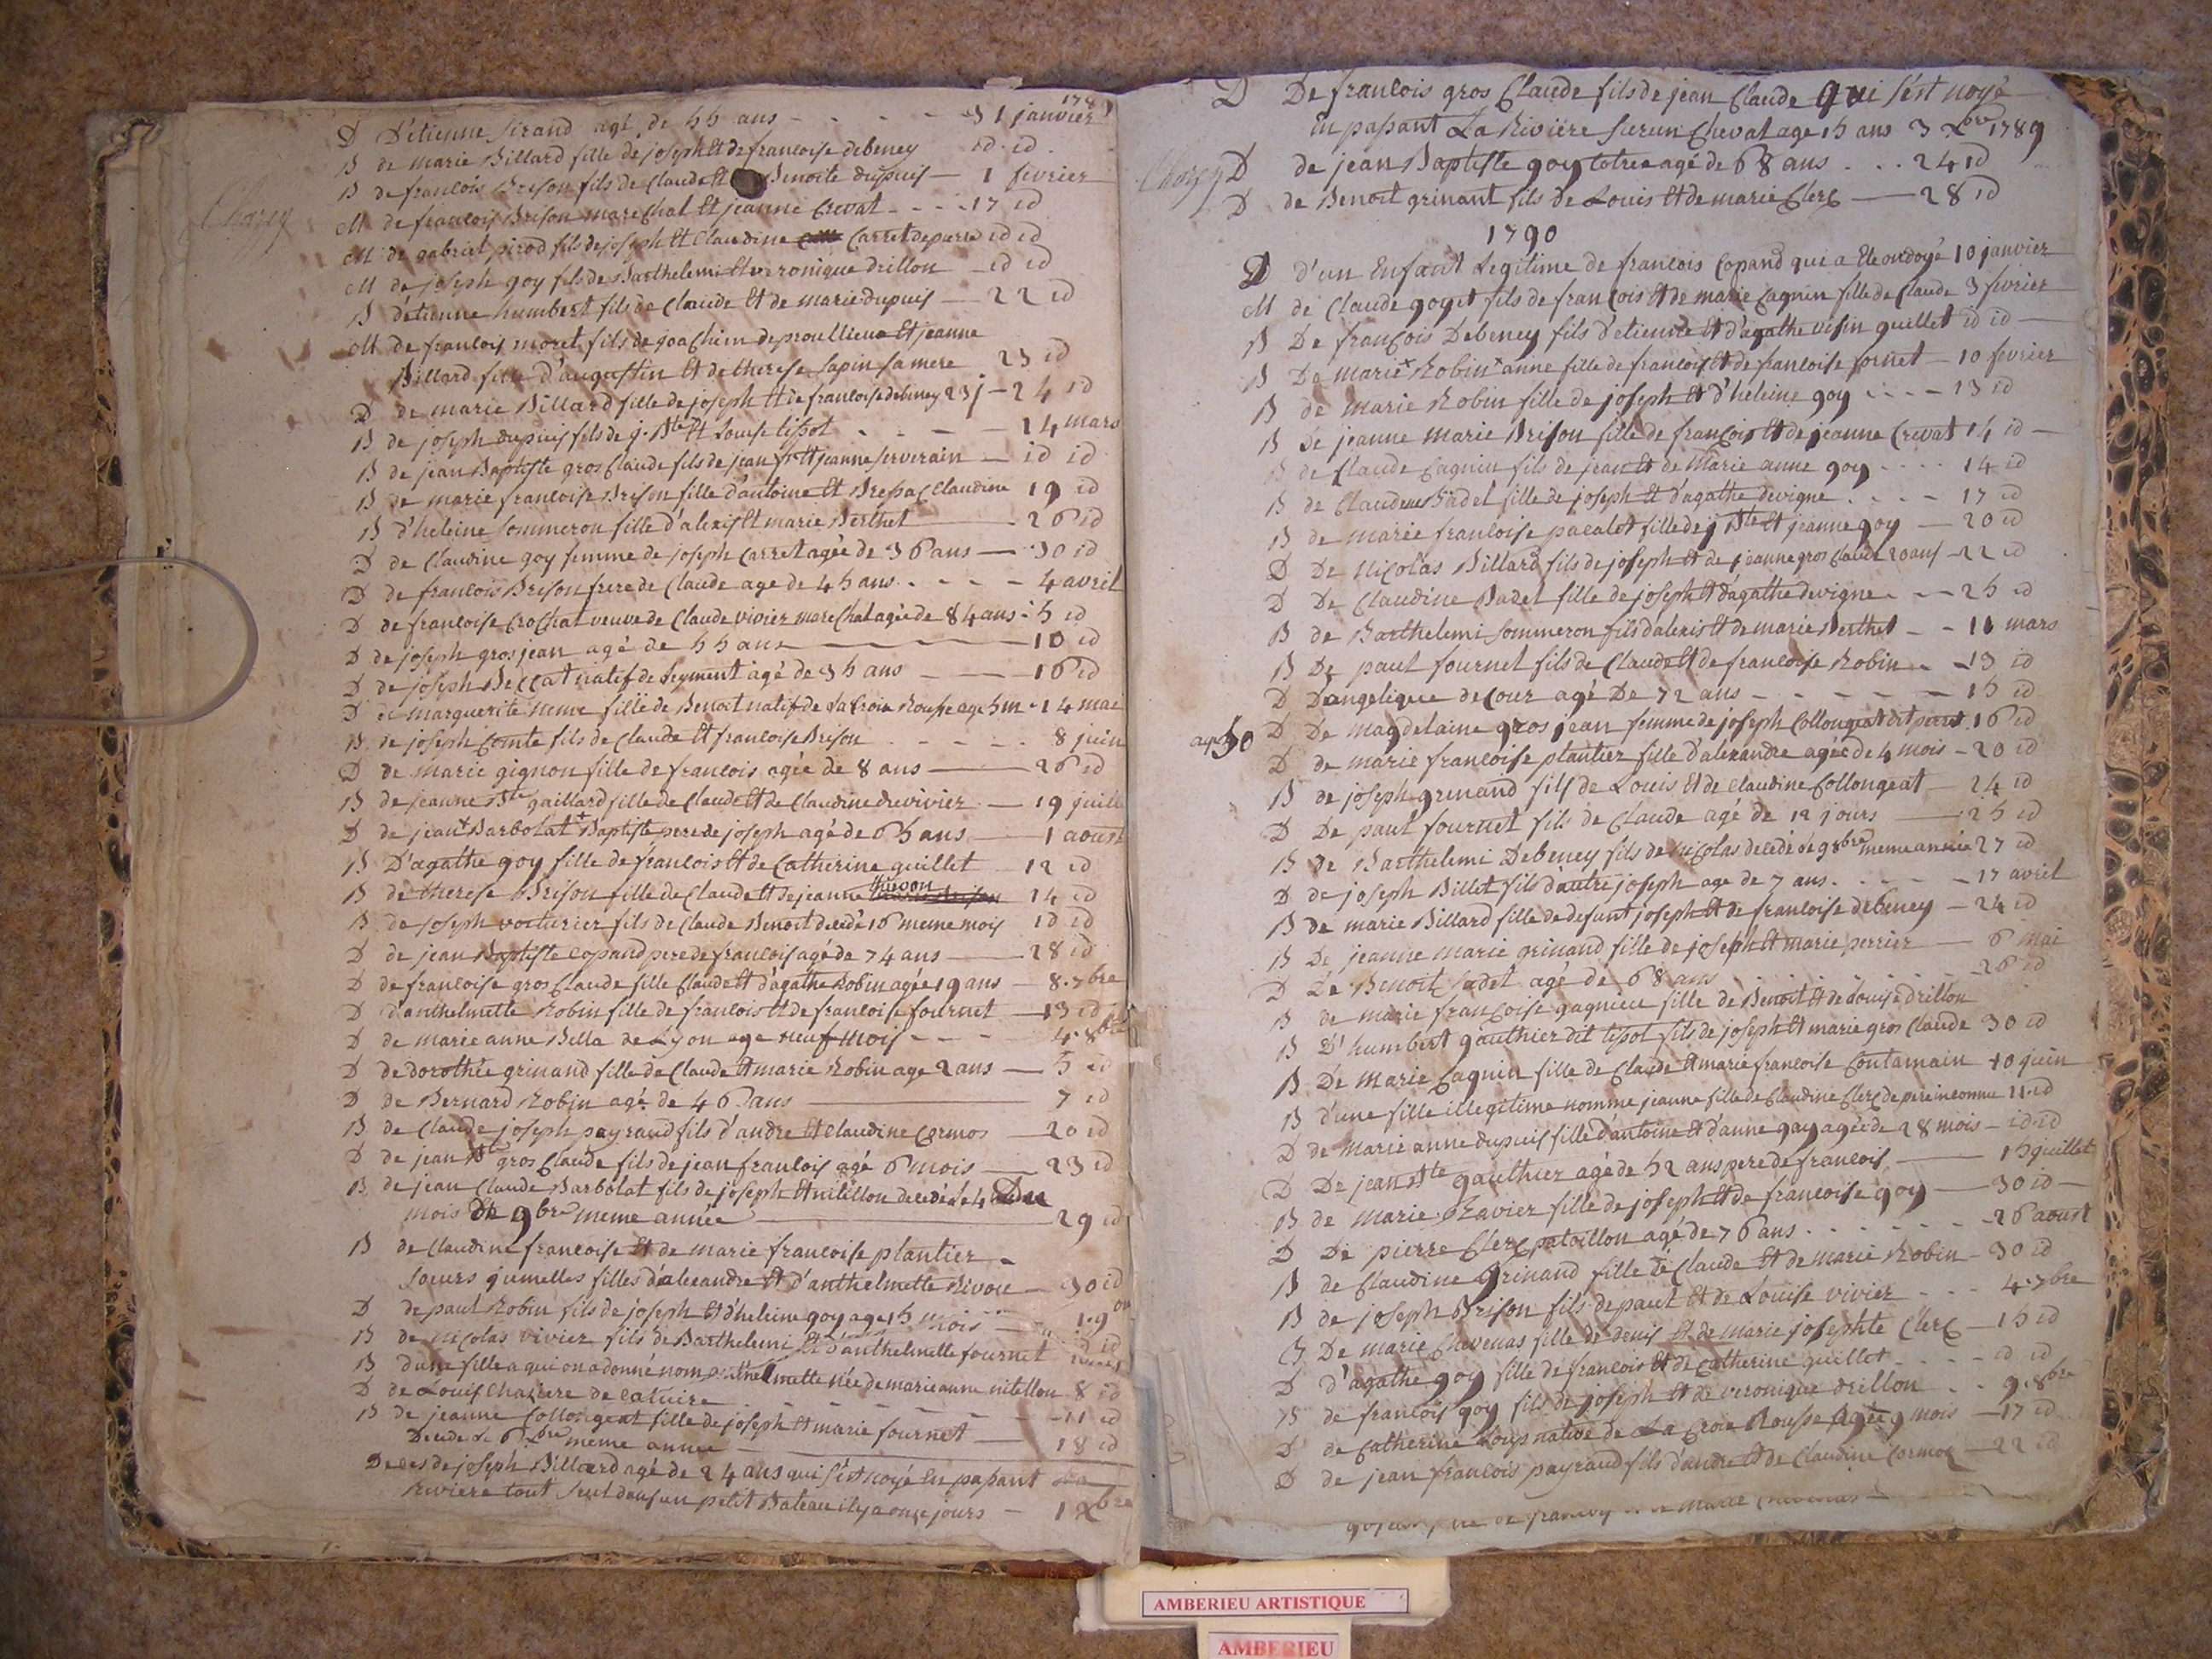 1789
D D'étienne sirand agé de 55 ans - - - - 31 janvier
B de marie Billard fille de joseph Et de francoise debeney id. id.
B de francois Brison fils de Claude Et Benoite dupuis — 1 fevrier
Charey
M de francois Brison marechal Et jeanne Crevat - - - 17 id
M de gabriel pirod fils de joseph Et Claudine Carret depierre id id
M de joseph goy fils de Barthelemi Et veronique drillon — id id
B d'étienne humbert fils de Claude Et de marie dupuis — 22 id
M de francois moret fils de joachim de proullieux Et jeanne
Billard fille d'augustin Et de therese sapin sa mere 23 id
D de marie Billard fille de joseph Et de francoise debeney 23 j - 24 id
B de joseph dupuis fils de j. Bte Et Louise tissot - - - 14 mars
B de jean Baptiste gros Claude fils de jean fr Et jeanne serverain — id id
B de marie francoise Brison fille d'antoine Et Bressac Claudine 19 id
B d'heleine sommeron fille d'alexis Et marie Berthet — 26 id
D de Claudine goy femme de joseph Carret agée de 36 ans — 30 id
D de francois Brison frere de Claude age de 45 ans - - - 4 avril
D de francoise Crochat veuve de Claude vivier marechal agée de 84 ans - 5 id
D de joseph gros jean agé de 55 ans — 10 id
D de joseph Beccat natif de seyment agé de 35 ans — 16 id
D de marguerite neme fille de Benoit natif de La Croix Rousse age 5 m - 14 mai
B de joseph Comte fils de Claude Et francoise Brison - - - - 8 juin
D de marie gignon fille de francois agée de 8 ans — 26 id
B de jeanne Bte gaillard fille de Claude Et de Claudine duvivier — 19 juill
D de jean + Barbolat + Baptiste pere de joseph agé de 65 ans — 1 aoust
B D'agathe goy fille de francois Et de Catherine quillet — 12 id
B de therese Brison fille de Claude Et de jeanne thevon 14 id
B de joseph voiturier fils de Claude Benoit decedé 16 meme mois id id
D de jean Baptiste Copand pere de francois agé de 74 ans — 28 id
D de francoise gros Claude fille Claude Et d'agathe Robin agée 19 ans — 8. 7bre
D d'anthelmette Robin fille de francois Et de francoise fournet — 13 id
D de marie anne Bella de Lyon age neuf mois - - - 4. 8bre
D de dorothée grinand fille de Claude Et marie Robin age 2 ans — 5 id
D de Bernard Robin agé de 46 ans — 7 id
B de Claude joseph payraud fils d'andre Et Claudine Cormos — 20 id
D de jean Bte gros Claude fils de jean francois agé 6 mois — 23 id
B de jean Claude Barbolat fils de joseph Et nitillon decedé le 4 du
mois de 9bre meme année — 29 id
B de Claudine francoise Et de marie francoise plantier -
soeurs jumelles filles d'alexandre Et d'anthelmette Rivon — 30 id
D de paul Robin fils de joseph Et d'heleine goy age 15 mois — 1. 9bre
B de nicolas vivier fils de Barthelemi Et d'anthelmette fournet id id
B d'une fille a qui on a donné nom anthelmette née de marie anne nitellon 8 id
D de Louis de Caluire - - - - 11 id
B de jeanne Collongeat fille de joseph Et marie fournet —
Decedé le 6 Xbre meme année — 18 id
Deces de joseph Billard agé de 24 ans qui s'est noyé En passant La
Riviere tout seul dans un petit Bateau il y a onze jours — 1 Xbre
D De francois gros Claude fils de jean Claude qui s'est noyé
En passant La Riviere sur un Cheval age 15 ans 3 Xbre 1789
Charey D de jean Baptiste goy totree agé de 68 ans . . . 24 id
D de Benoit grinant fils de Louis Et de marie Clerc — 28 id
1790
D d'un Enfant Legitime de francois Copand qui a Ete ondoyé 10 janvier
M de Claude goyet fils de francois Et de marie Cagnin fille de Claude 3 fevrier
B De francois Debeney fils d'etienne Et d'agathe visin quillet id id —
B De marie + Robin + anne fille de francois Et de francoise fornet — 10 fevrier
B de marie Robin fille de joseph Et d'heleine goy - - - - 13 id
B De jeanne marie Brison fille de francois Et de jeanne Crevat 14 id —
B de Claude Cagnin fils de jean Et de marie anne goy - - - - 14 id
B de Claudine Badel fille de joseph Et d'agathe devigne - - - - 17 id
B de marie francoise pacalet fille de j Bte Et jeanne goy — 20 id
D De Nicolas Billard fils de joseph Et de jeanne gros Claude 20 ans — 22 id
D De Claudine Badel fille de joseph Et d'agathe devigne - - - 25 id
B de Barthelemi sommeron fils d'alexis Et de marie Berthet - - 11 mars
B De paul fournet fils de Claude Et de francoise Robin - - 13 id
D D'angelique de Cour agé De 72 ans - - - - - - 15 id
50 D De magdelaine gros jean femme de joseph Collongeat dit 16 id
D de marie francoise plantier fille d'alexandre agée de 4 mois — 20 id
B de joseph grinand fils de Louis Et de Claudine Collongeat — 24 id
D De paul fournet fils de Claude agé de 12 jours — 25 id
B de Barthelemi Debeney fils de nicolas decedé le 9bre meme année 27 id
D de joseph Billet fils d'autre joseph age de 7 ans - - - - 17 avril
B de marie Billard fille de defunt joseph Et de francoise debeney — 24 id
B De jeanne marie grinand fille de joseph Et marie perrier — 6 mai
D De Benoit sadet agé de 68 ans - - - - - - 26 id
B de marie francoise gagnieu fille de Benoit Et de Louise drillon
B D'humbert gauthier dit tissot fils de joseph Et marie gros Claude 30 id
B De marie Cagnin fille de Claude Et marie francoise Contamain 10 juin
B d'une fille illegitime nomme jeanne fille de Claudine Clerc de pere inconnu 11 id
D de marie anne dupuis fille d'antoine Et d'anne gay agée de 28 mois — id. id
D De jean Bte gauthier agé de 52 ans pere de francois — 15 juillet
B de marie Ravier fille de joseph Et de francoise goy — 30 id —
D De pierre Clerc patoillon agé de 76 ans - - - - - 26 aoust
B de Claudine Grinand fille de Claude Et de marie Robin — 30 id
B de joseph Brison fils de paul Et de Louise vivier - - - 4. 7bre
B De marie Chevenas fille de denis Et de marie josephte Clerc — 15 id
D d'agathe goy fille de francois Et de Catherine quillet - - - id id
B de francois goy fils de joseph Et de veronique drillon - - 9. 8bre
D de Catherine Loup native de La Croix Rousse Agée 9 mois — 17 id
D de jean francois payraud fils d'andre Et de Claudine Cormos — 22 id
AMBERIEU ARTISTIQUE
AMBERIEU